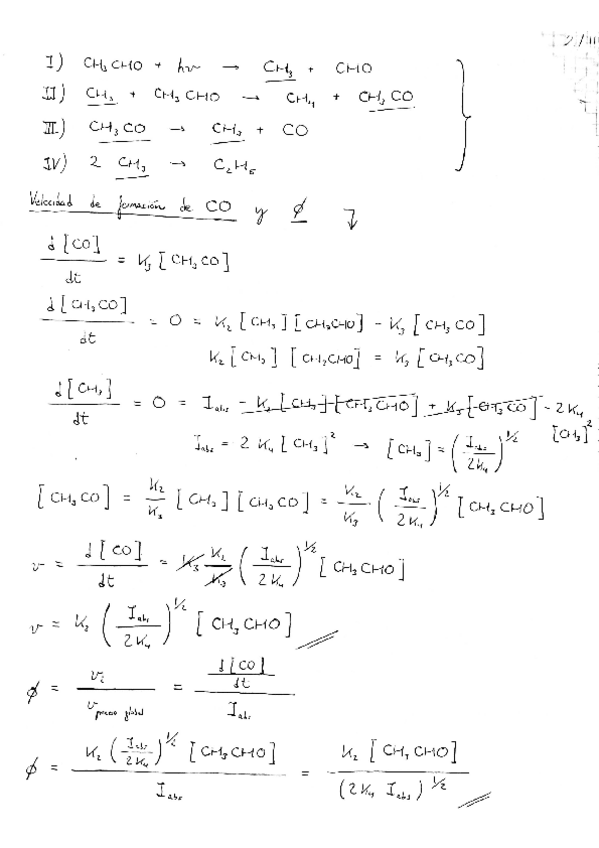 I) CH₃CHO + hν → CH₃ + CHO
II) CH₃ + CH₃CHO → CH₄ + CH₃CO
III) CH₃CO → CH₃ + CO
IV) 2 CH₃ → C₂H₆
Velocidad de formación de CO y ϕ
d[CO]/dt = K₃ [CH₃CO]
d[CH₃CO]/dt = 0 = K₂ [CH₃] [CH₃CHO] - K₃ [CH₃CO]
K₂ [CH₃] [CH₃CHO] = K₃ [CH₃CO]
d[CH₃]/dt = 0 = I_abs - K₂ [CH₃] [CH₃CHO] + K₃ [CH₃CO] - 2K₄ [CH₃]²
I_abs = 2 K₄ [CH₃]² → [CH₃] = (I_abs/2K₄)^1/2
[CH₃CO] = K₂/K₃ [CH₃] [CH₃CO] = K₂/K₃ (I_abs/2K₄)^1/2 [CH₃CHO]
v = d[CO]/dt = K₃ K₂/K₃ (I_abs/2K₄)^1/2 [CH₃CHO]
v = K₂ (I_abs/2K₄)^1/2 [CH₃CHO]
ϕ = v_i/v_global = d[CO]/dt / I_abs
ϕ = K₂ (I_abs/2K₄)^1/2 [CH₃CHO] / I_abs = K₂ [CH₃CHO] / (2K₄ I_abs)^1/2